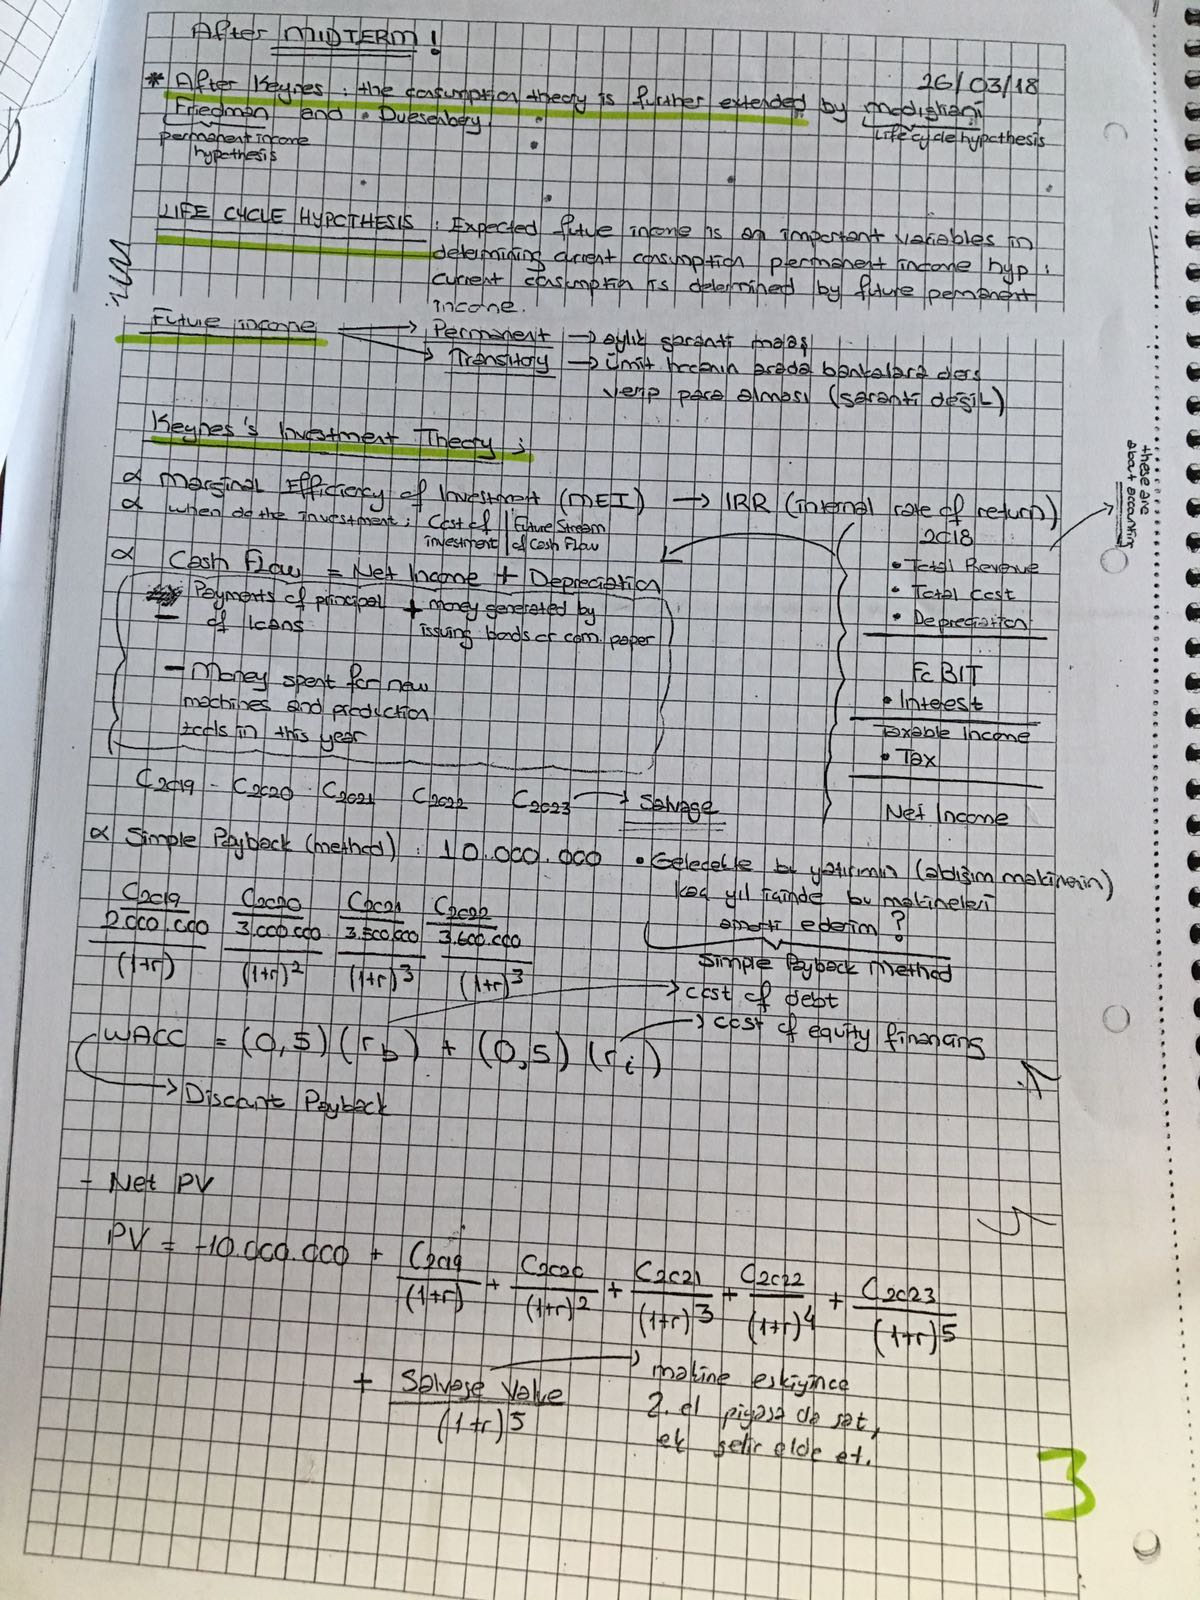 After MIDTERM!
26/03/18
* After Keynes : the consumption theory is further extended by modigliani,
Friedman and Duesenberry
permanent income
hypothesis
Life cycle hypothesis
LIFE CYCLE HYPOTHESIS : Expected future income is an important variables in
determining current consumption permanent income hyp :
current consumption is determined by future permanent
income.
Future income → Permanent → aylık garanti maaş
→ Transitory → Ümit hocanın arada bankalara ders
verip para alması (garanti değil)
Keynes's Investment Theory ;
∝ Marginal Efficiency of Investment (MEI) → IRR (internal rate of return)
∝ when do the investment ; Cost of investment / Future Stream of Cash Flow
∝ Cash Flow = Net Income + Depreciation
- Payments of principal of loans + money generated by issuing bonds or com. paper
- Money spent for new
machines and production
tools in this year
2018
• Total Revenue
• Total Cost
• Depreciation
EBIT
• Interest
Taxable Income
• Tax
Net Income
these are
about accounting
C2019 - C2020 C2021 C2022 C2023 → Salvage
∝ Simple Payback (method) : 10.000.000
• Gelecekte bu yatırımın (aldığım makinenin)
kaç yıl içinde bu makineleri
amorti ederim ?
Simple Payback Method
C2019 C2020 C2021 C2022
2.000.000 3.000.000 3.500.000 3.600.000
(1+r) (1+r)² (1+r)³ (1+r)³
→ cost of debt
→ cost of equity financing
WACC = (0,5) (rb) + (0,5) (ri)
→ Discount Payback
- Net PV
PV = -10.000.000 + C2019/(1+r) + C2020/(1+r)² + C2021/(1+r)³ + C2022/(1+r)⁴ + C2023/(1+r)⁵
+ Salvage Value/(1+r)⁵
→ makine eskiyince
2. el piyasa da sat,
ek gelir elde et.
3